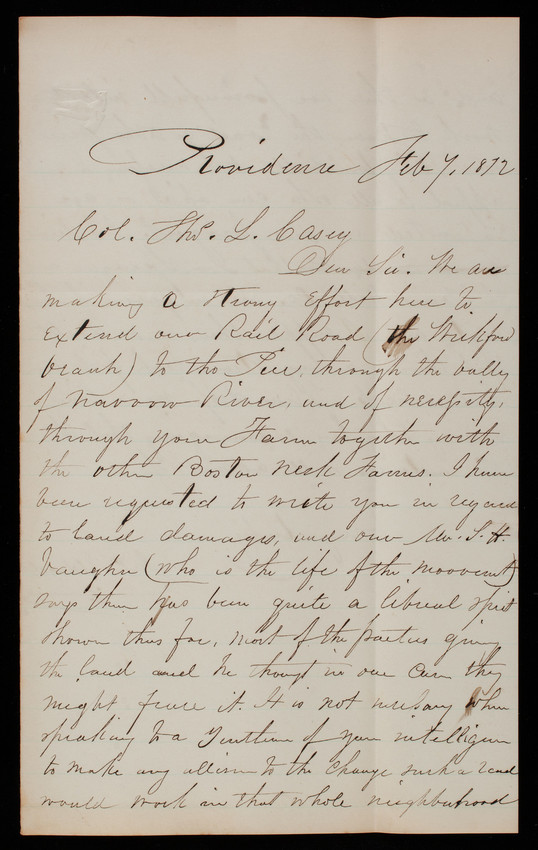 Providence Feb 7, 1872
Col. Thos. L. Casey
Dear Sir. We are
making a strong effort here to
extend our Rail Road (the Wickford
branch) to the Pier, through the vally
of Narrow River, and of necessity,
through your Farm together with
the other Boston Neck Farms. I have
been requested to write you in regard
to land damages, and our Mr. S. H.
Vaughn (who is the life of the moovement)
says there has been quite a liberal spirit
shown thus far, most of the parties giving
the land and he thought in our case they
might fence it. It is not necessary when
speaking to a Gentleman of your intelligence
to make any allusion to the change such a road
would work in that whole neighborhood